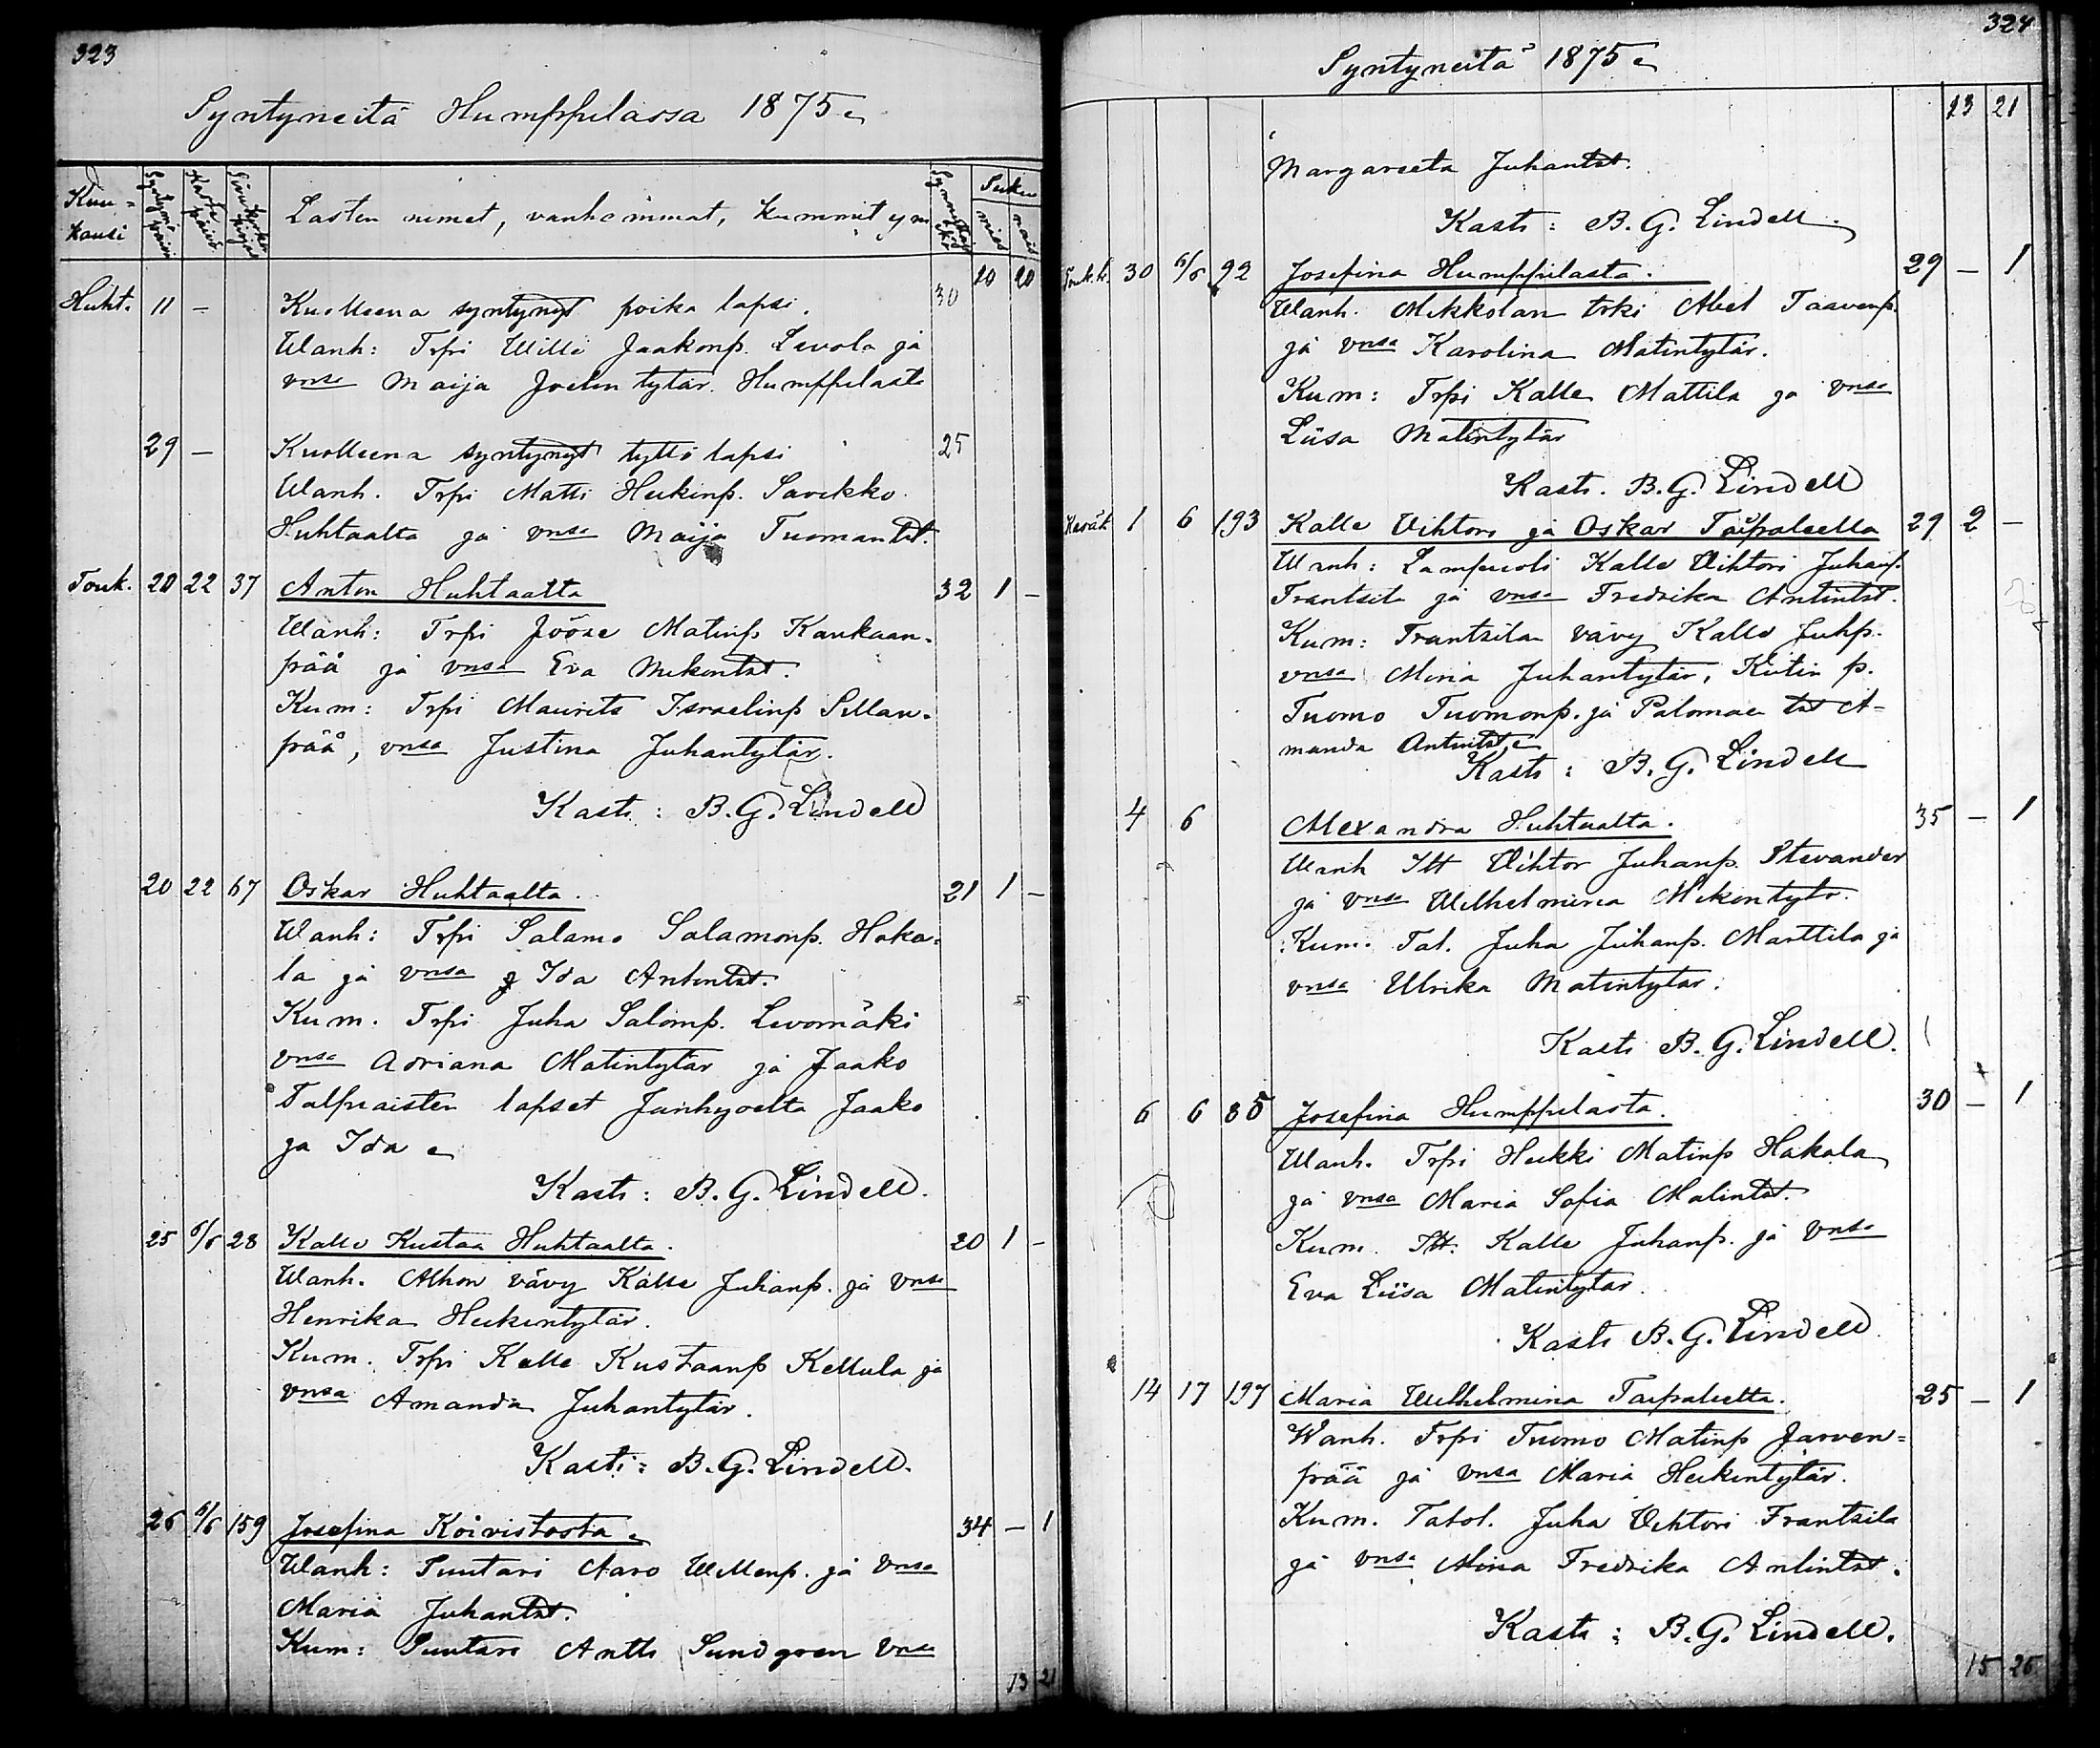 323
Syntyneitä Humppilassa 1875.
Kuu=
kausi
Syntymä
päivä
Kaste
päivä
Lasten nimet, vanhemmat, kummit y m
Suku
mies
nais
20 20
Huht. 11 – Kuolleena syntynyt poika lapsi. 30
Wanh: Trpi Willi Jaakonp. Levola ja
vnsa Maija Joelin tytär. Humppilasta
29 – Kuolleena syntynyt tyttö lapsi 25
Wanh. Trpi Matti Heikinp. Savikko
Huhtaalta ja vnsa Maija Tuomantt.
Touk. 20 22 37 Anton Huhtaalta 32 1 –
Wanh: Trpi Jööse Matinp. Kankaan-
pää ja vnsa Eva Mikontt.
Kum: Trpi Maurits Israelinp Sillan-
pää, vnsa Justina Juhantytär.
Kasti: B. G. Lindell
20 22 67 Oskar Huhtaalta. 21 1 –
Wanh: Trpi Salamo Salamonp. Haka-
la ja vnsa Ida Antintt.
Kum. Trpi Juha Salomp. Levomäki
vnsa Adriana Matintytär ja Jaako
Talpiaisten lapset Jänhyoelta Jaako
ja Ida
Kasti: B. G. Lindell.
25 6/6 28 Kalle Kustaa Huhtaalta. 20 1 –
Wanh. Alhon vävy Kalle Juhanp. ja vnsa
Henrika Heikintytär.
Kum. Trpi Kalle Kustaanp Kellula ja
vnsa Amanda Juhantytär.
Kasti: B. G. Lindell.
26 6/6 159 Josefina Koivistosta. 34 – 1
Wanh: Suutari Aaro Willenp. ja vnsa
Maria Juhantt.
Kum: Suutari Antti Sundgren vnsa
13 21
324
Syntyneitä 1875.
13 21
Margareeta Juhantt.
Kasti: B. G. Lindell.
Touk.k. 30 6/6 92 Josefina Humppilasta. 29 – 1
Wanh. Mikkolan trki Abel Taavenp.
ja vnsa Karolina Matintytär.
Kum: Trpi Kalle Mattila ja vnsa
Liisa Matintytär
Kasti. B. G. Lindell
Kesäk. 1 6 193 Kalle Vihtori ja Oskar Taipaleella 29 2 –
Wanh: Lampuoti Kalle Vihtori Juhanp.
Frantsila ja vnsa Fredrika Antintt.
Kum: Frantsilan vävy Kalle Juhp.
vnsa Mina Juhantytär, Kiitin p.
Tuomo Tuomonp. ja Palomaa tt A-
manda Antintt.
Kasti: B. G. Lindell
4 6 Alexandra Huhtaalta. 35 – 1
Wanh Itt Vihtor Juhanp. Stevander
ja vnsa Wilhelmina Mikontytr.
Kum. Tal. Juha Juhanp. Marttila ja
vnsa Ulrika Matintytär.
Kasti B. G. Lindell.
6 6 85 Josefina Humppilasta. 30 – 1
Wanh. Trpi Heikki Matinp Hakala
ja vnsa Maria Sofia Matintt.
Kum. Itt. Kalle Juhanp. ja vnsa
Eva Liisa Matintytär.
Kasti B. G. Lindell
14 17 197 Maria Wilhelmina Taipaleelta. 25 – 1
Wanh. Trpi Tuomo Matinp Järven=
pää ja vnsa Maria Heikintytär.
Kum. Talol. Juha Vihtori Frantsila
ja vnsa Mina Fredrika Antintt.
Kasti: B. G. Lindell.
15 26